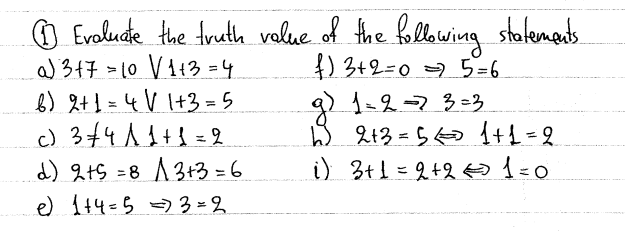 ① Evaluate the truth value of the following statements
a) 3+7=10 ∨ 1+3=4 f) 3+2=0 ⇒ 5=6
b) 2+1=4 ∨ 1+3=5 g) 1=2 ⇒ 3=3
c) 3≠4 ∧ 1+1=2 h) 2+3=5 ⇔ 1+1=2
d) 2+5=8 ∧ 3+3=6 i) 3+1=2+2 ⇔ 1=0
e) 1+4=5 ⇒ 3=2